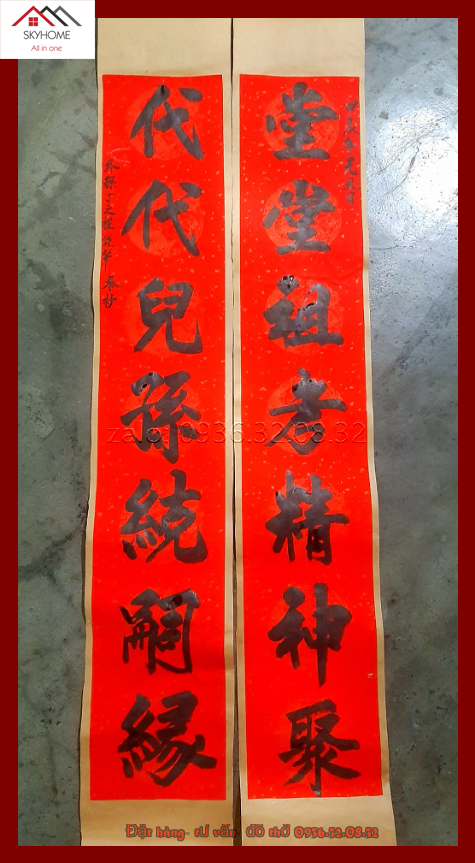 SKYHOME
All in one
堂堂祖考精神聚
代代兒孫統嗣緣
zalo: 0936.32.08.32
Đặt hàng- tư vấn đồ thờ 0936.32.08.32